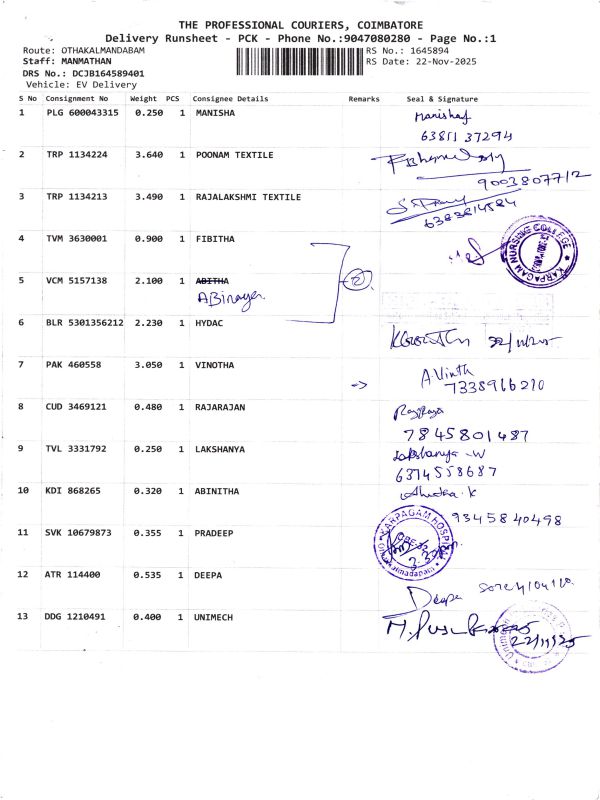 THE PROFESSIONAL COURIERS, COIMBATORE
Delivery Runsheet - PCK - Phone No.:9047080280 - Page No.:1
Route: OTHAKALMANDABAM RS No.: 1645894
Staff: MANMATHAN RS Date: 22-Nov-2025
DRS No.: DCJB164589401
Vehicle: EV Delivery
S No Consignment No Weight PCS Consignee Details Remarks Seal & Signature
1 PLG 600043315 0.250 1 MANISHA
63811 37294
2 TRP 1134224 3.640 1 POONAM TEXTILE
9003807712
3 TRP 1134213 3.490 1 RAJALAKSHMI TEXTILE
6383614584
4 TVM 3630001 0.900 1 FIBITHA
KARPAGAM NURSING COLLEGE
5 VCM 5157138 2.100 1 ABITHA
ABinaya
2
6 BLR 5301356212 2.230 1 HYDAC
22/11/25
7 PAK 460558 3.050 1 VINOTHA
A.Vinth
7338966210
8 CUD 3469121 0.480 1 RAJARAJAN
7845801487
9 TVL 3331792 0.250 1 LAKSHANYA
Lakshanya -W
6374558687
10 KDI 868265 0.320 1 ABINITHA
9345840498
11 SVK 10679873 0.355 1 PRADEEP
KARPAGAM HOSPITAL
12 ATR 114400 0.535 1 DEEPA
Deepa
13 DDG 1210491 0.400 1 UNIMECH
22/11/25